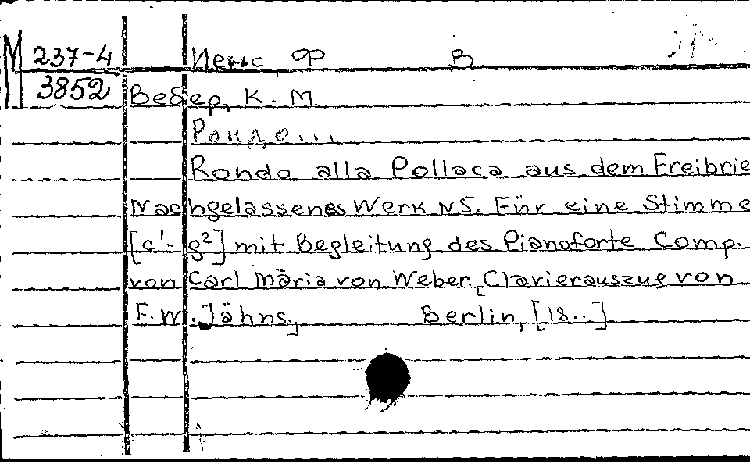 М 237-4 Иенс Ф В
3852 Вебер, К. М
Рондо...
Rondo alla Pollaca aus dem Freibrie
Nachgelassenes Werk N5. Für eine Stimme
[c'- g²] mit Begleitung des Pianoforte Comp.
von Carl Maria von Weber, Clavierauszug von
F. W. Jähns, Berlin, [18..]